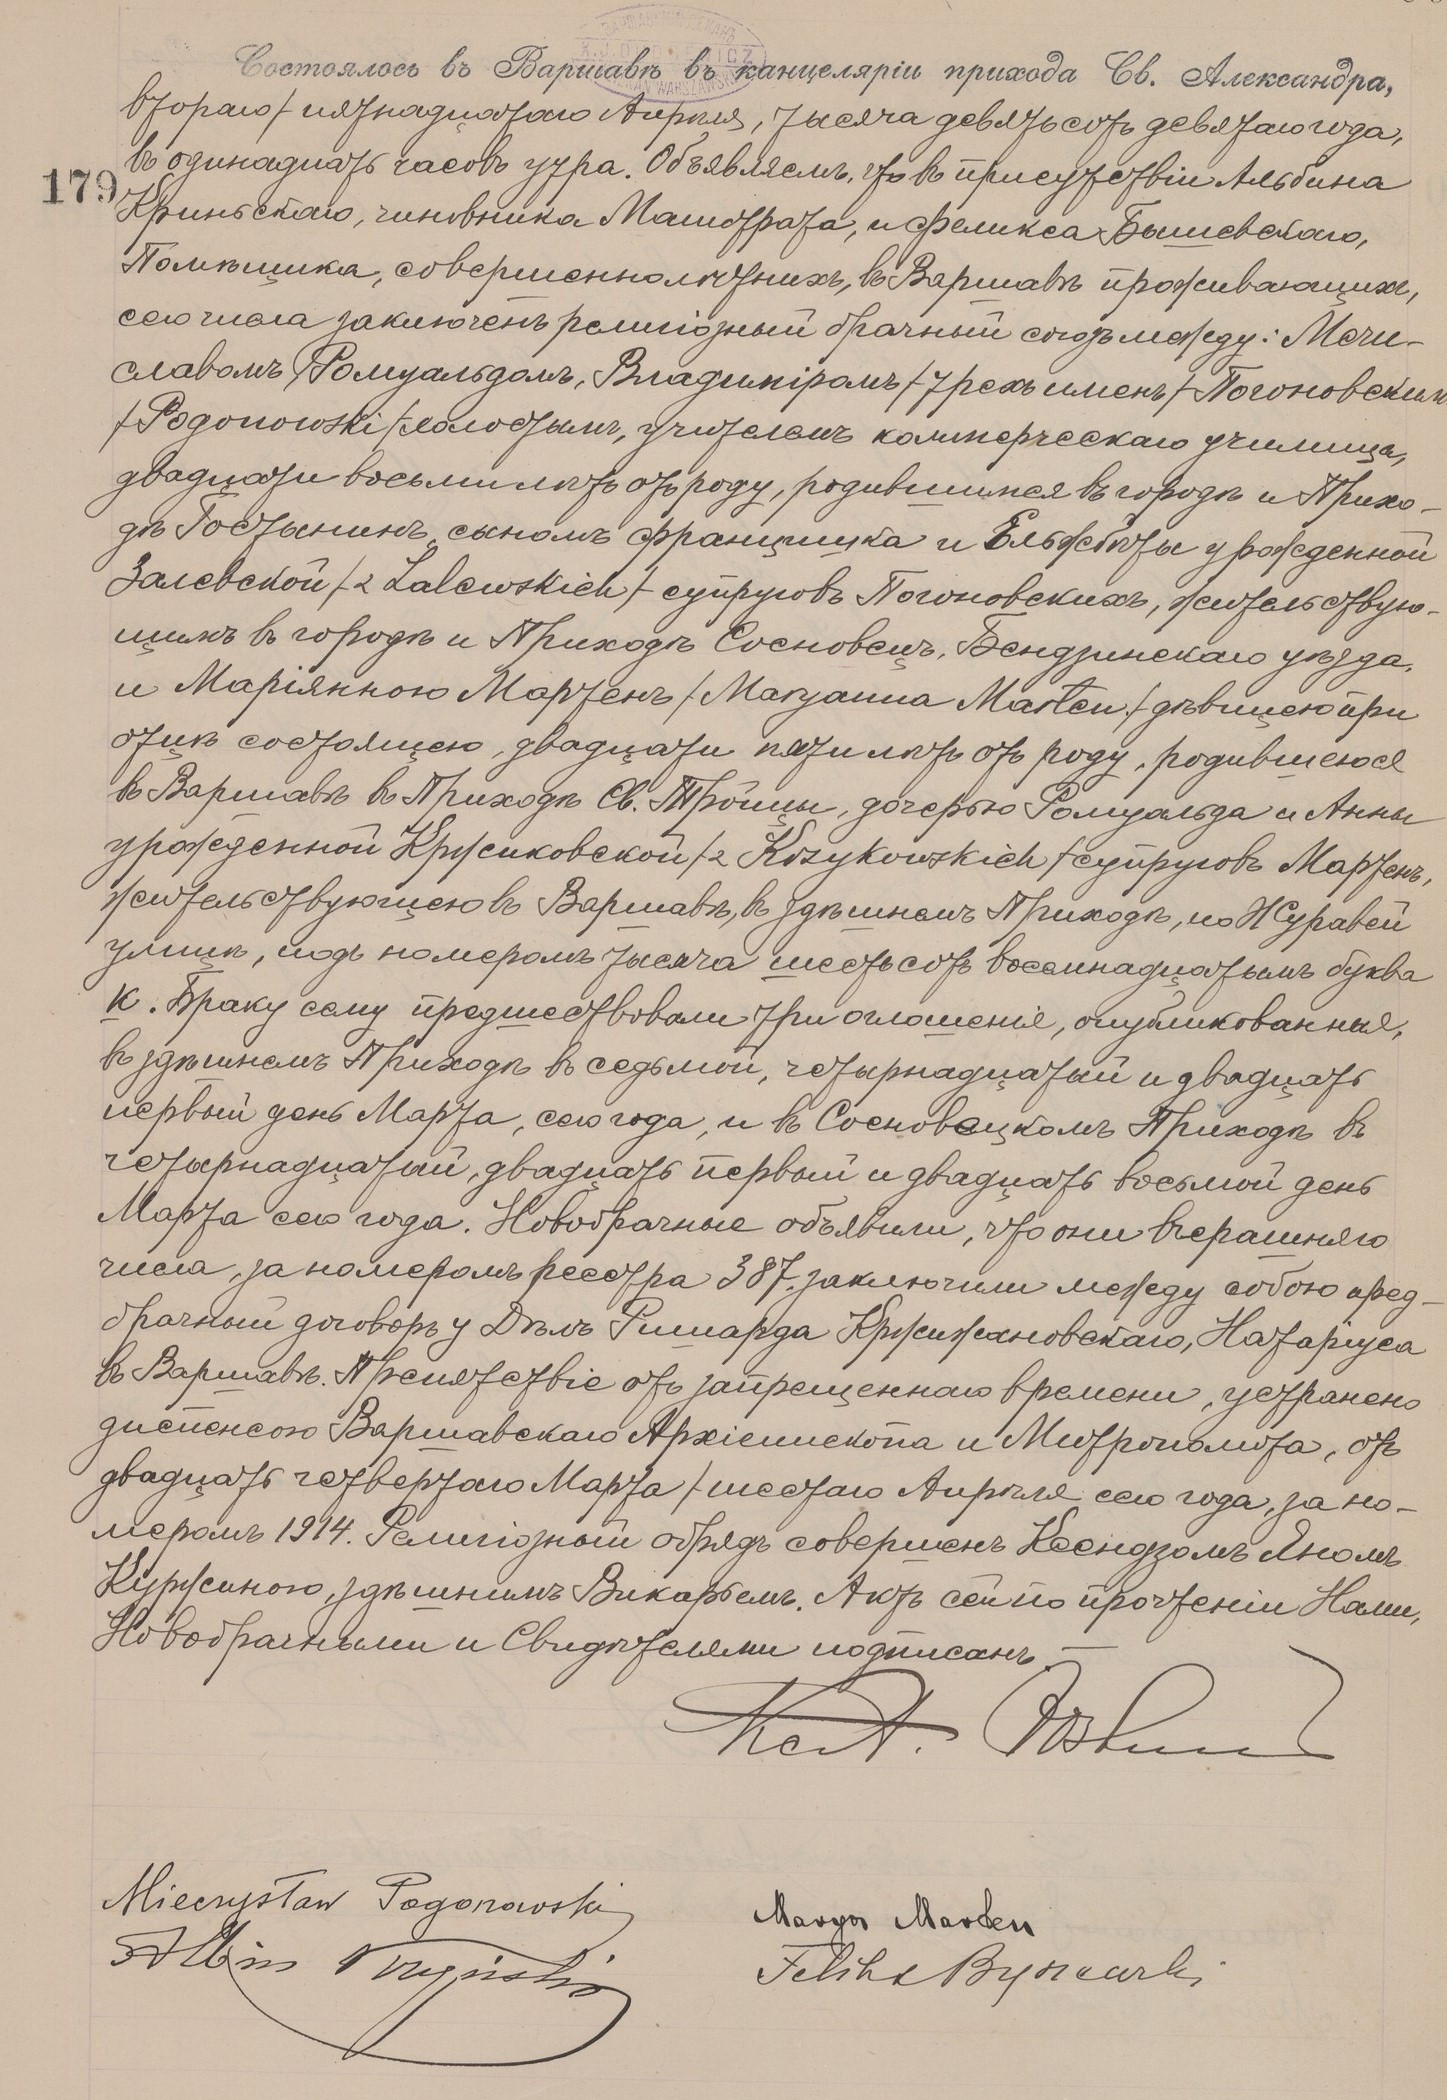 Состоялось въ Варшавѣ въ канцеляріи прихода Св. Александра,
втораго/пятнадцатаго Апрѣля, тысяча девятьсотъ девятаго года,
въ одинадцать часовъ утра. Объявляемъ, что въ присутствіи Альбина
179
Криньскаго, чиновника Магистрата, и Феликса Бышевскаго,
Помѣщика, совершеннолѣтнихъ, въ Варшавѣ проживающихъ,
сего числа заключенъ религіозный брачный союзъ между: Мечи-
славомъ, Ромуальдомъ, Владиміромъ /трехъ именъ/ Погоновскимъ
/Pogonowski/ холостымъ, учителемъ коммерческаго училища,
двадцати восьми лѣтъ отъ роду, родившимся въ городѣ и Прихо-
дѣ Гостынинъ, сыномъ Францишка и Ельжбѣты урожденной
Залевской /z Zalewskich/ супруговъ Погоновскихъ, жительствую-
щимъ въ городѣ и Приходѣ Сосновецъ, Бендзинскаго уѣзда,
и Маріянною Мартенъ /Maryanna Marten/ дѣвицею при
отцѣ состоящею, двадцати пяти лѣтъ отъ роду, родившеюся
въ Варшавѣ въ Приходѣ Св. Тройцы, дочерью Ромуальда и Анны
урожденной Кржиковской /z Krzykowskich/ супруговъ Мартенъ,
жительствующею въ Варшавѣ, въ здѣшнемъ Приходѣ, по Журавей
улицѣ, подъ номеромъ тысяча шестьсотъ восемнадцатымъ буква
К. Браку сему предшествовали три оглошенія, опубликованныя,
въ здѣшнемъ Приходѣ въ седьмой, четырнадцатый и двадцать
первый день Марта, сего года, и въ Сосновецкомъ Приходѣ въ
четырнадцатый, двадцать первый и двадцать восьмой день
Марта сего года. Новобрачные объявили, что они вчерашняго
числа, за номеромъ реестра 387. заключили между собою пред-
брачный договоръ у Дѣлъ Ришарда Кржижановскаго, Натаріуса
въ Варшавѣ. Препятствіе отъ запрещеннаго времени, устранено
диспенсою Варшавскаго Архіепископа и Митрополита, отъ
двадцать четвертаго Марта /шестаго Апрѣля сего года, за но-
меромъ 1914. Религіозный обрядъ совершенъ Ксендзомъ Яномъ
Куржиною, здѣшнимъ Викаріемъ. Актъ сей по прочтеніи Нами,
Новобрачными и Свидѣтелями подписанъ. —
Mieczysław Pogonowski
Marya Marten
Albin Kryński
Feliks Byszewski